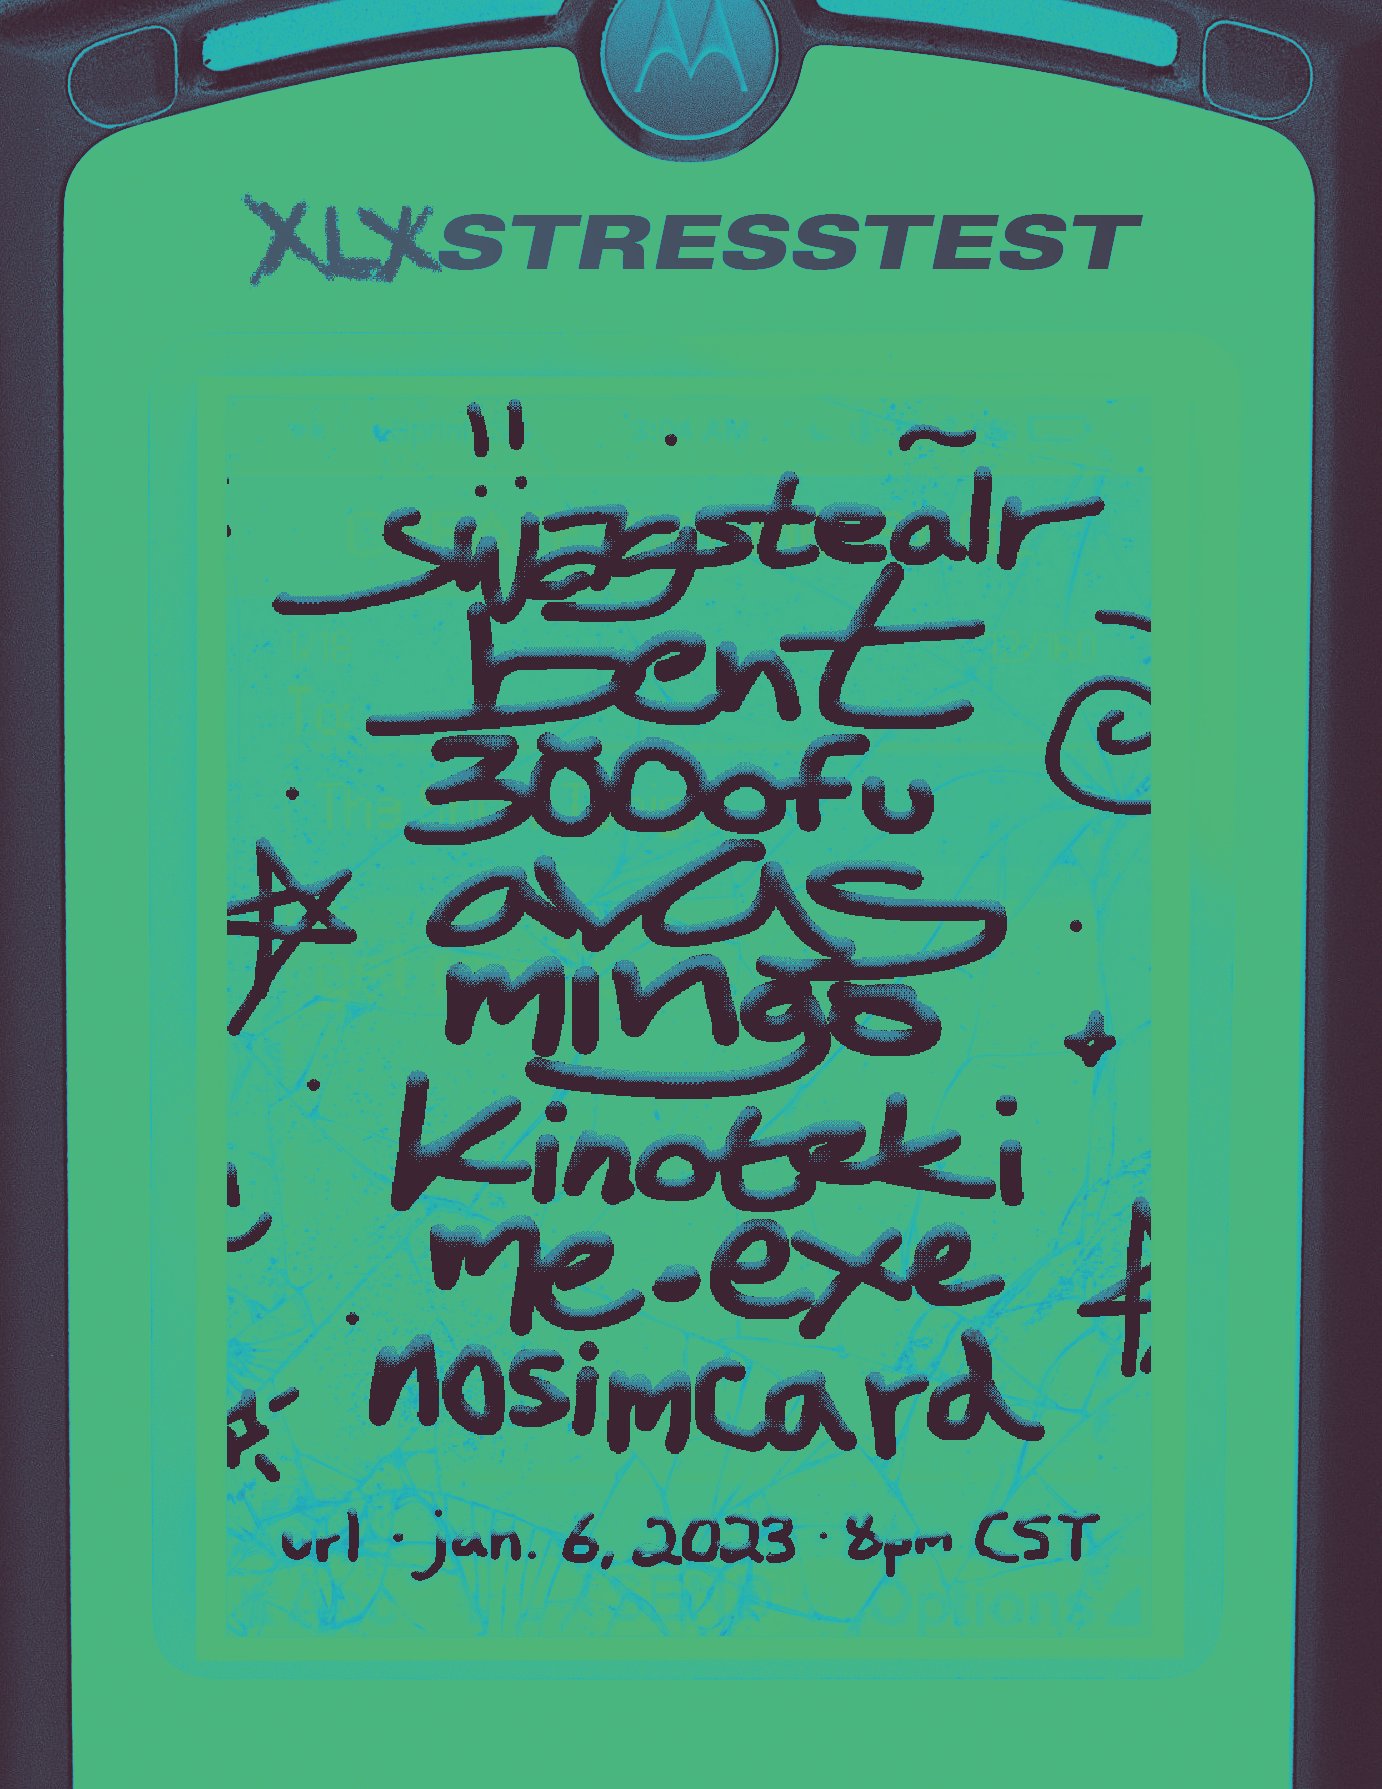 XLXSTRESSTEST
swagstealr
bent
300ofu
avas
mingo
kinoteki
me-exe
nosimcard
url · jan. 6, 2023 · 8pm CST
Options